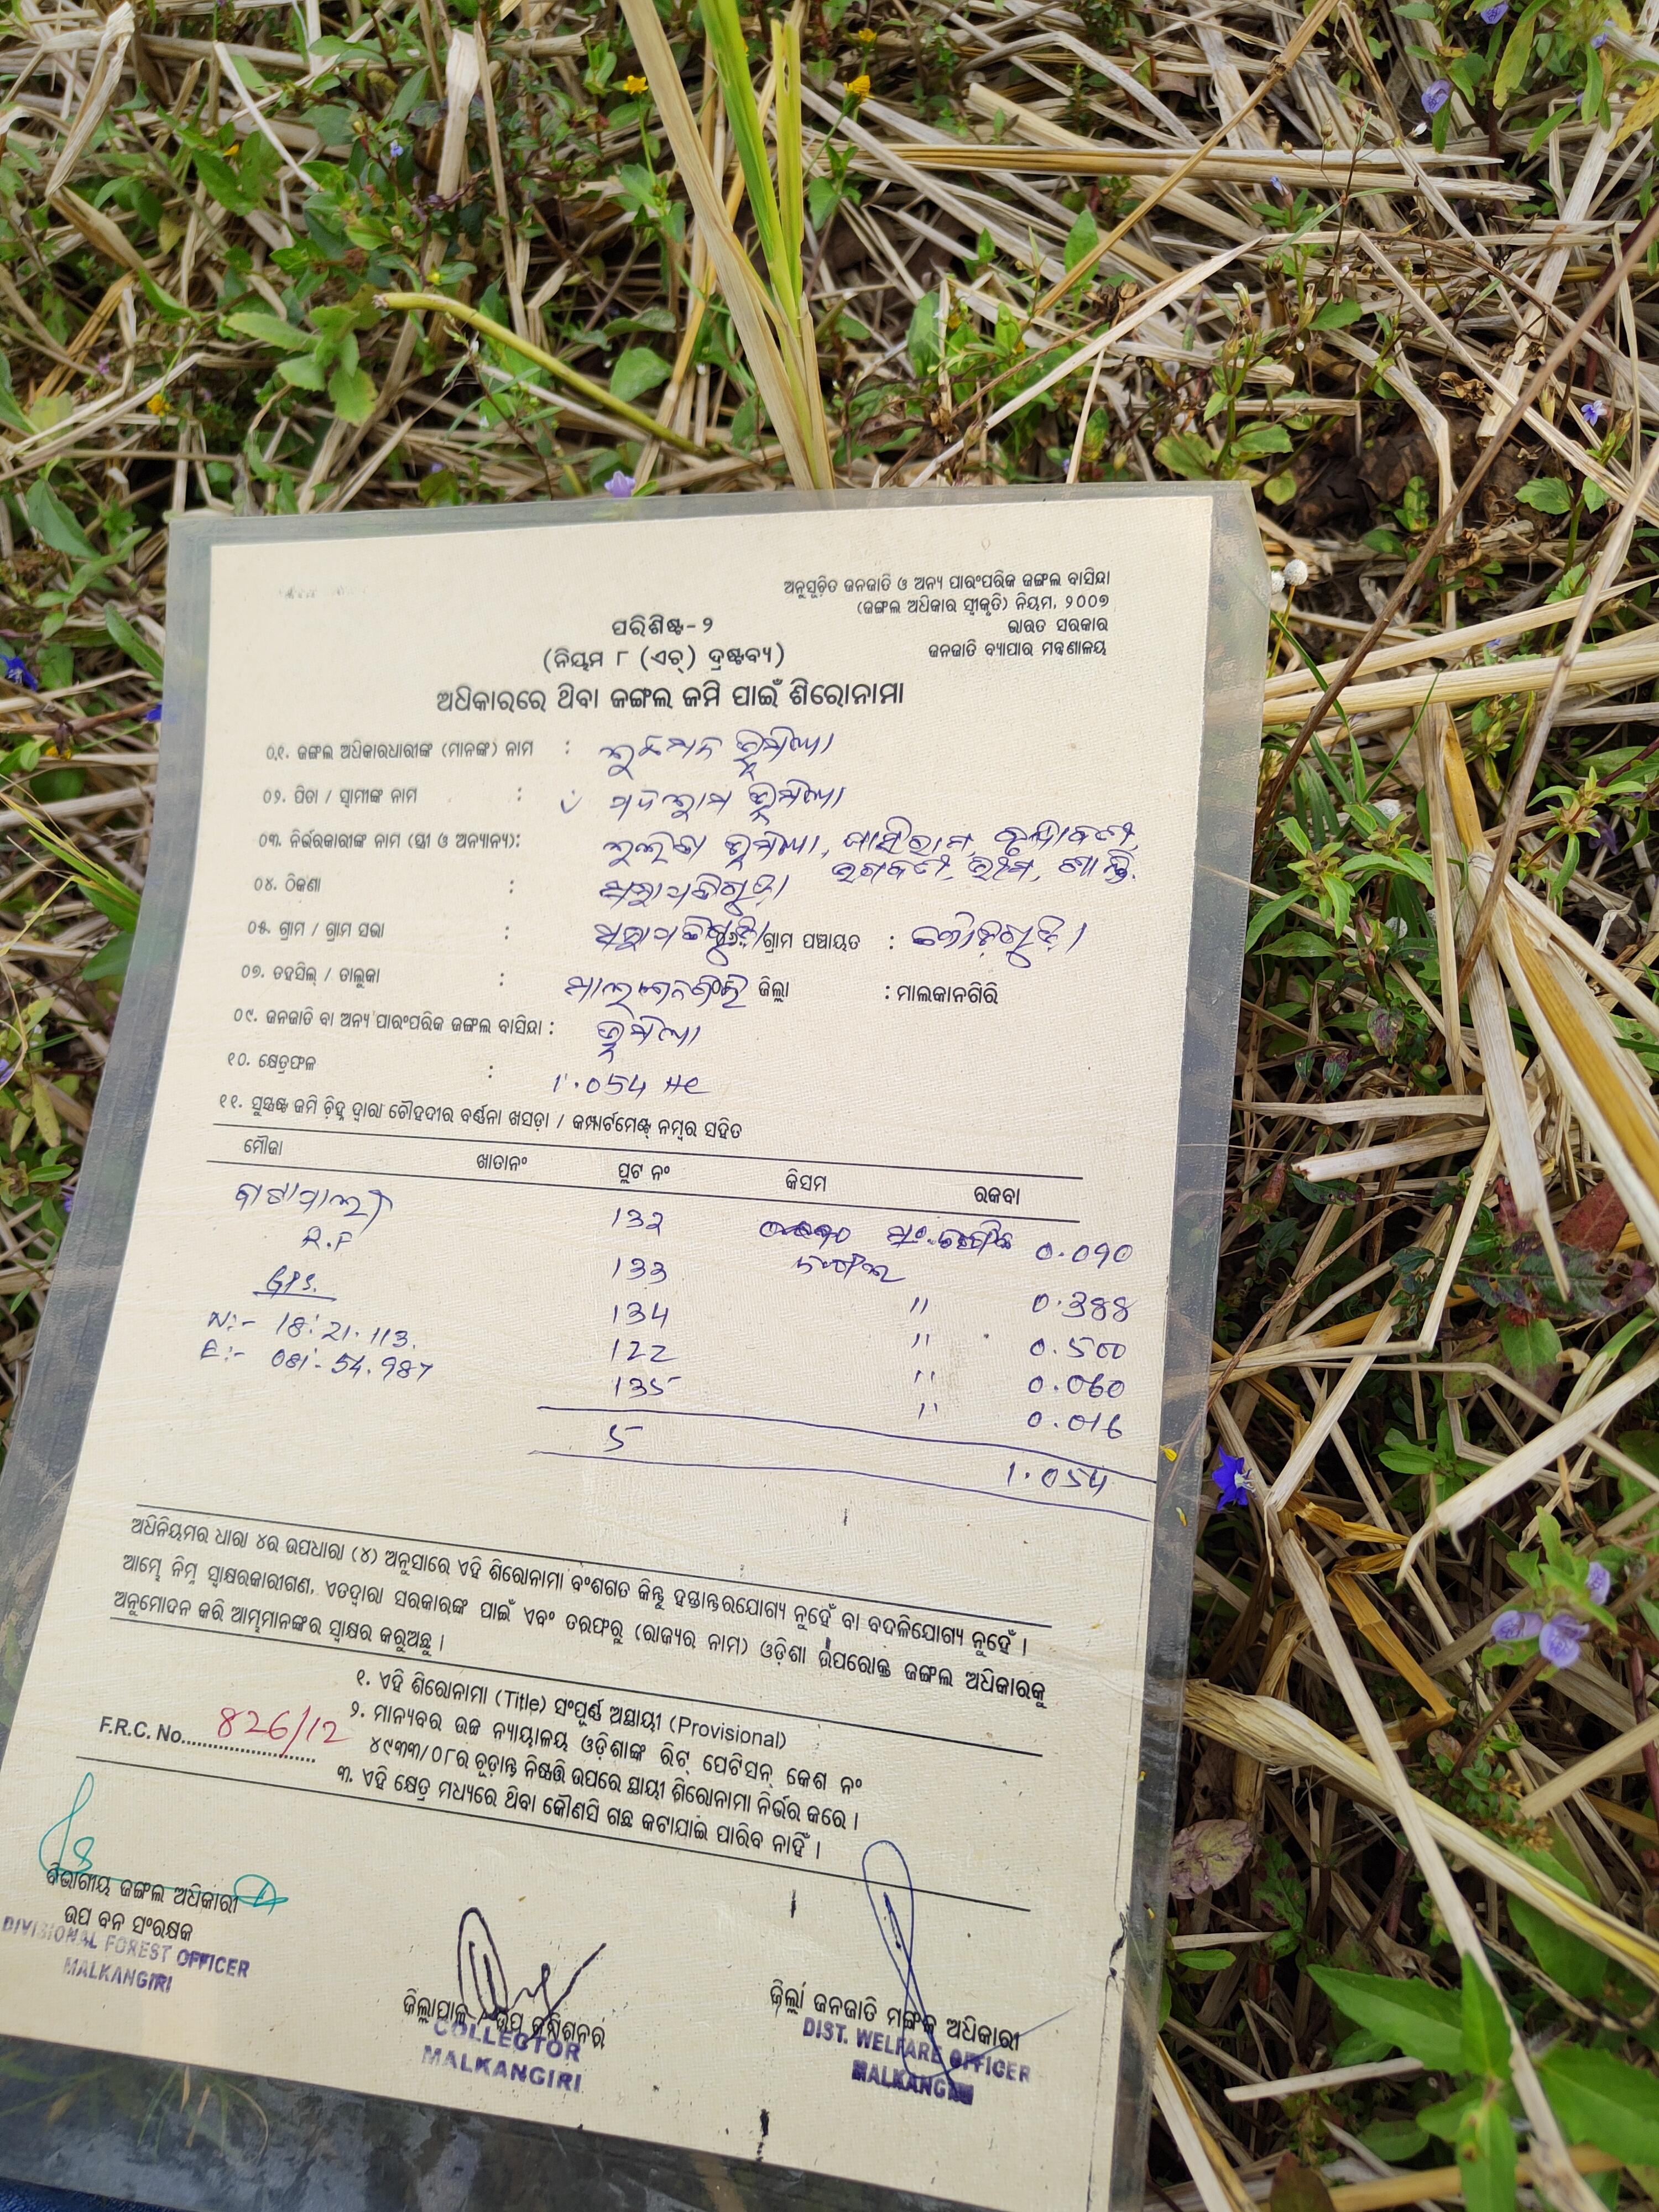 ଅନୁସୂଚିତ ଜନଜାତି ଓ ଅନ୍ୟ ପାରଂପରିକ ଜଙ୍ଗଲ ବାସିନ୍ଦା
(ଜଙ୍ଗଲ ଅଧିକାର ସ୍ୱୀକୃତି) ନିୟମ, ୨୦୦୭
ଭାରତ ସରକାର
ଜନଜାତି ବ୍ୟାପାର ମନ୍ତ୍ରଣାଳୟ
ପରିଶିଷ୍ଟ-୨
(ନିୟମ ୮ (ଏଚ୍) ଦ୍ରଷ୍ଟବ୍ୟ)
ଅଧିକାରରେ ଥିବା ଜଙ୍ଗଲ ଜମି ପାଇଁ ଶିରୋନାମା
୦୧. ଜଙ୍ଗଲ ଅଧିକାରଧାରୀଙ୍କ (ମାନଙ୍କ) ନାମ : ଭୂମିଆ
୦୨. ପିତା / ସ୍ୱାମୀଙ୍କ ନାମ : ଭୂମିଆ
୦୩. ନିର୍ଭରକାରୀଙ୍କ ନାମ (ସ୍ତ୍ରୀ ଓ ଅନ୍ୟାନ୍ୟ): ଭୂମିଆ,
୦୪. ଠିକଣା :
୦୫. ଗ୍ରାମ / ଗ୍ରାମ ସଭା : ୦୬. ଗ୍ରାମ ପଞ୍ଚାୟତ :
୦୭. ତହସିଲ୍ / ତାଲୁକା : ମାଲକାନଗିରି ଜିଲ୍ଲା : ମାଲକାନଗିରି
୦୯. ଜନଜାତି ବା ଅନ୍ୟ ପାରଂପରିକ ଜଙ୍ଗଲ ବାସିନ୍ଦା : ଭୂମିଆ
୧୦. କ୍ଷେତ୍ରଫଳ : 1.054 Hc
୧୧. ସୁସ୍ପଷ୍ଟ ଜମି ଚିହ୍ନ ଦ୍ୱାରା ଚୌହଦୀର ବର୍ଣ୍ଣନା ଖସଡ଼ା / କମ୍ପାର୍ଟମେଣ୍ଟ୍ ନମ୍ବର ସହିତ
ମୌଜା ଖାତାନଂ ପ୍ଲଟ ନଂ କିସମ ରକବା
132 0.090
R.F 133 " 0.388
GPS. 134 " 0.500
N:- 18°.21.113. 122 " 0.060
E:- 081°.54.987 135 " 0.016
5 1.054
ଅଧିନିୟମର ଧାରା ୪ର ଉପଧାରା (୪) ଅନୁସାରେ ଏହି ଶିରୋନାମା ବଂଶଗତ କିନ୍ତୁ ହସ୍ତାନ୍ତରଯୋଗ୍ୟ ନୁହେଁ ବା ବଦଳିଯୋଗ୍ୟ ନୁହେଁ ।
ଆମ୍ଭେ ନିମ୍ନ ସ୍ୱାକ୍ଷରକାରୀଗଣ, ଏତଦ୍ୱାରା ସରକାରଙ୍କ ପାଇଁ ଏବଂ ତରଫରୁ (ରାଜ୍ୟର ନାମ) ଓଡ଼ିଶା ଉପରୋକ୍ତ ଜଙ୍ଗଲ ଅଧିକାରକୁ
ଅନୁମୋଦନ କରି ଆମ୍ଭମାନଙ୍କର ସ୍ୱାକ୍ଷର କରୁଅଛୁ ।
୧. ଏହି ଶିରୋନାମା (Title) ସଂପୂର୍ଣ୍ଣ ଅସ୍ଥାୟୀ (Provisional)
୨. ମାନ୍ୟବର ଉଚ୍ଚ ନ୍ୟାୟାଳୟ ଓଡ଼ିଶାଙ୍କ ରିଟ୍ ପେଟିସନ୍ କେଶ ନଂ
୪୯୩୩/୦୮ର ଚୂଡ଼ାନ୍ତ ନିଷ୍ପତ୍ତି ଉପରେ ସ୍ଥାୟୀ ଶିରୋନାମା ନିର୍ଭର କରେ ।
୩. ଏହି କ୍ଷେତ୍ର ମଧ୍ୟରେ ଥିବା କୌଣସି ଗଛ କଟାଯାଇ ପାରିବ ନାହିଁ ।
F.R.C. No. 826/12
ବିଭାଗୀୟ ଜଙ୍ଗଲ ଅଧିକାରୀ
ଉପ ବନ ସଂରକ୍ଷକ
DIVISIONAL FOREST OFFICER
MALKANGIRI
ଜିଲ୍ଲାପାଳ / ଉପ କମିଶନର
COLLECTOR
MALKANGIRI
ଜିଲ୍ଲା ଜନଜାତି ମଙ୍ଗଳ ଅଧିକାରୀ
DIST. WELFARE OFFICER
MALKANGIRI